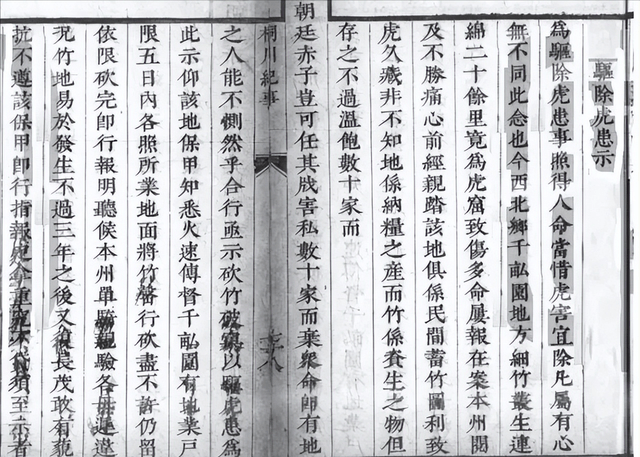 驅除虎患示
為驅除虎患事照得人命當惜虎害宜除凡屬有心
無不同此念也今西北鄉千畝園地方細竹叢生連
綿二十餘里竟為虎窟致傷多命屢報在案本州閱
及不勝痛心前經親踏該地俱係民間蓄竹圖利致
虎久藏非不知地係納糧之產而竹係資生之物但
存之不過溫飽數十家而
朝廷赤子豈可任其戕害私數十家而棄衆命卽有地
桐川紀事
之人能不惻然乎合行亟示砍竹破窠以驅虎患為
此示仰該地保甲知悉火速傳督千畝園有地業戶
限五日內各照所業地面將竹槩行砍盡不許仍留
依限砍完卽行報明聽候本州單騎親驗各毋遲違
况竹地易於發生不過三年之後又復長茂敢有藐
抗不遵該保甲卽行指報重究不貸須至示者